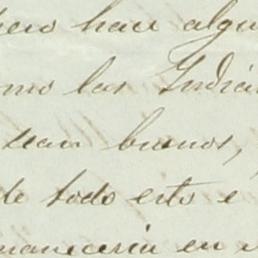 pero hace algu
omo las Indi
sean buenos,
de todo esto e
maneceria en